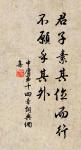 君子素其位而行
不願乎其外
中庸第十四章詞典網